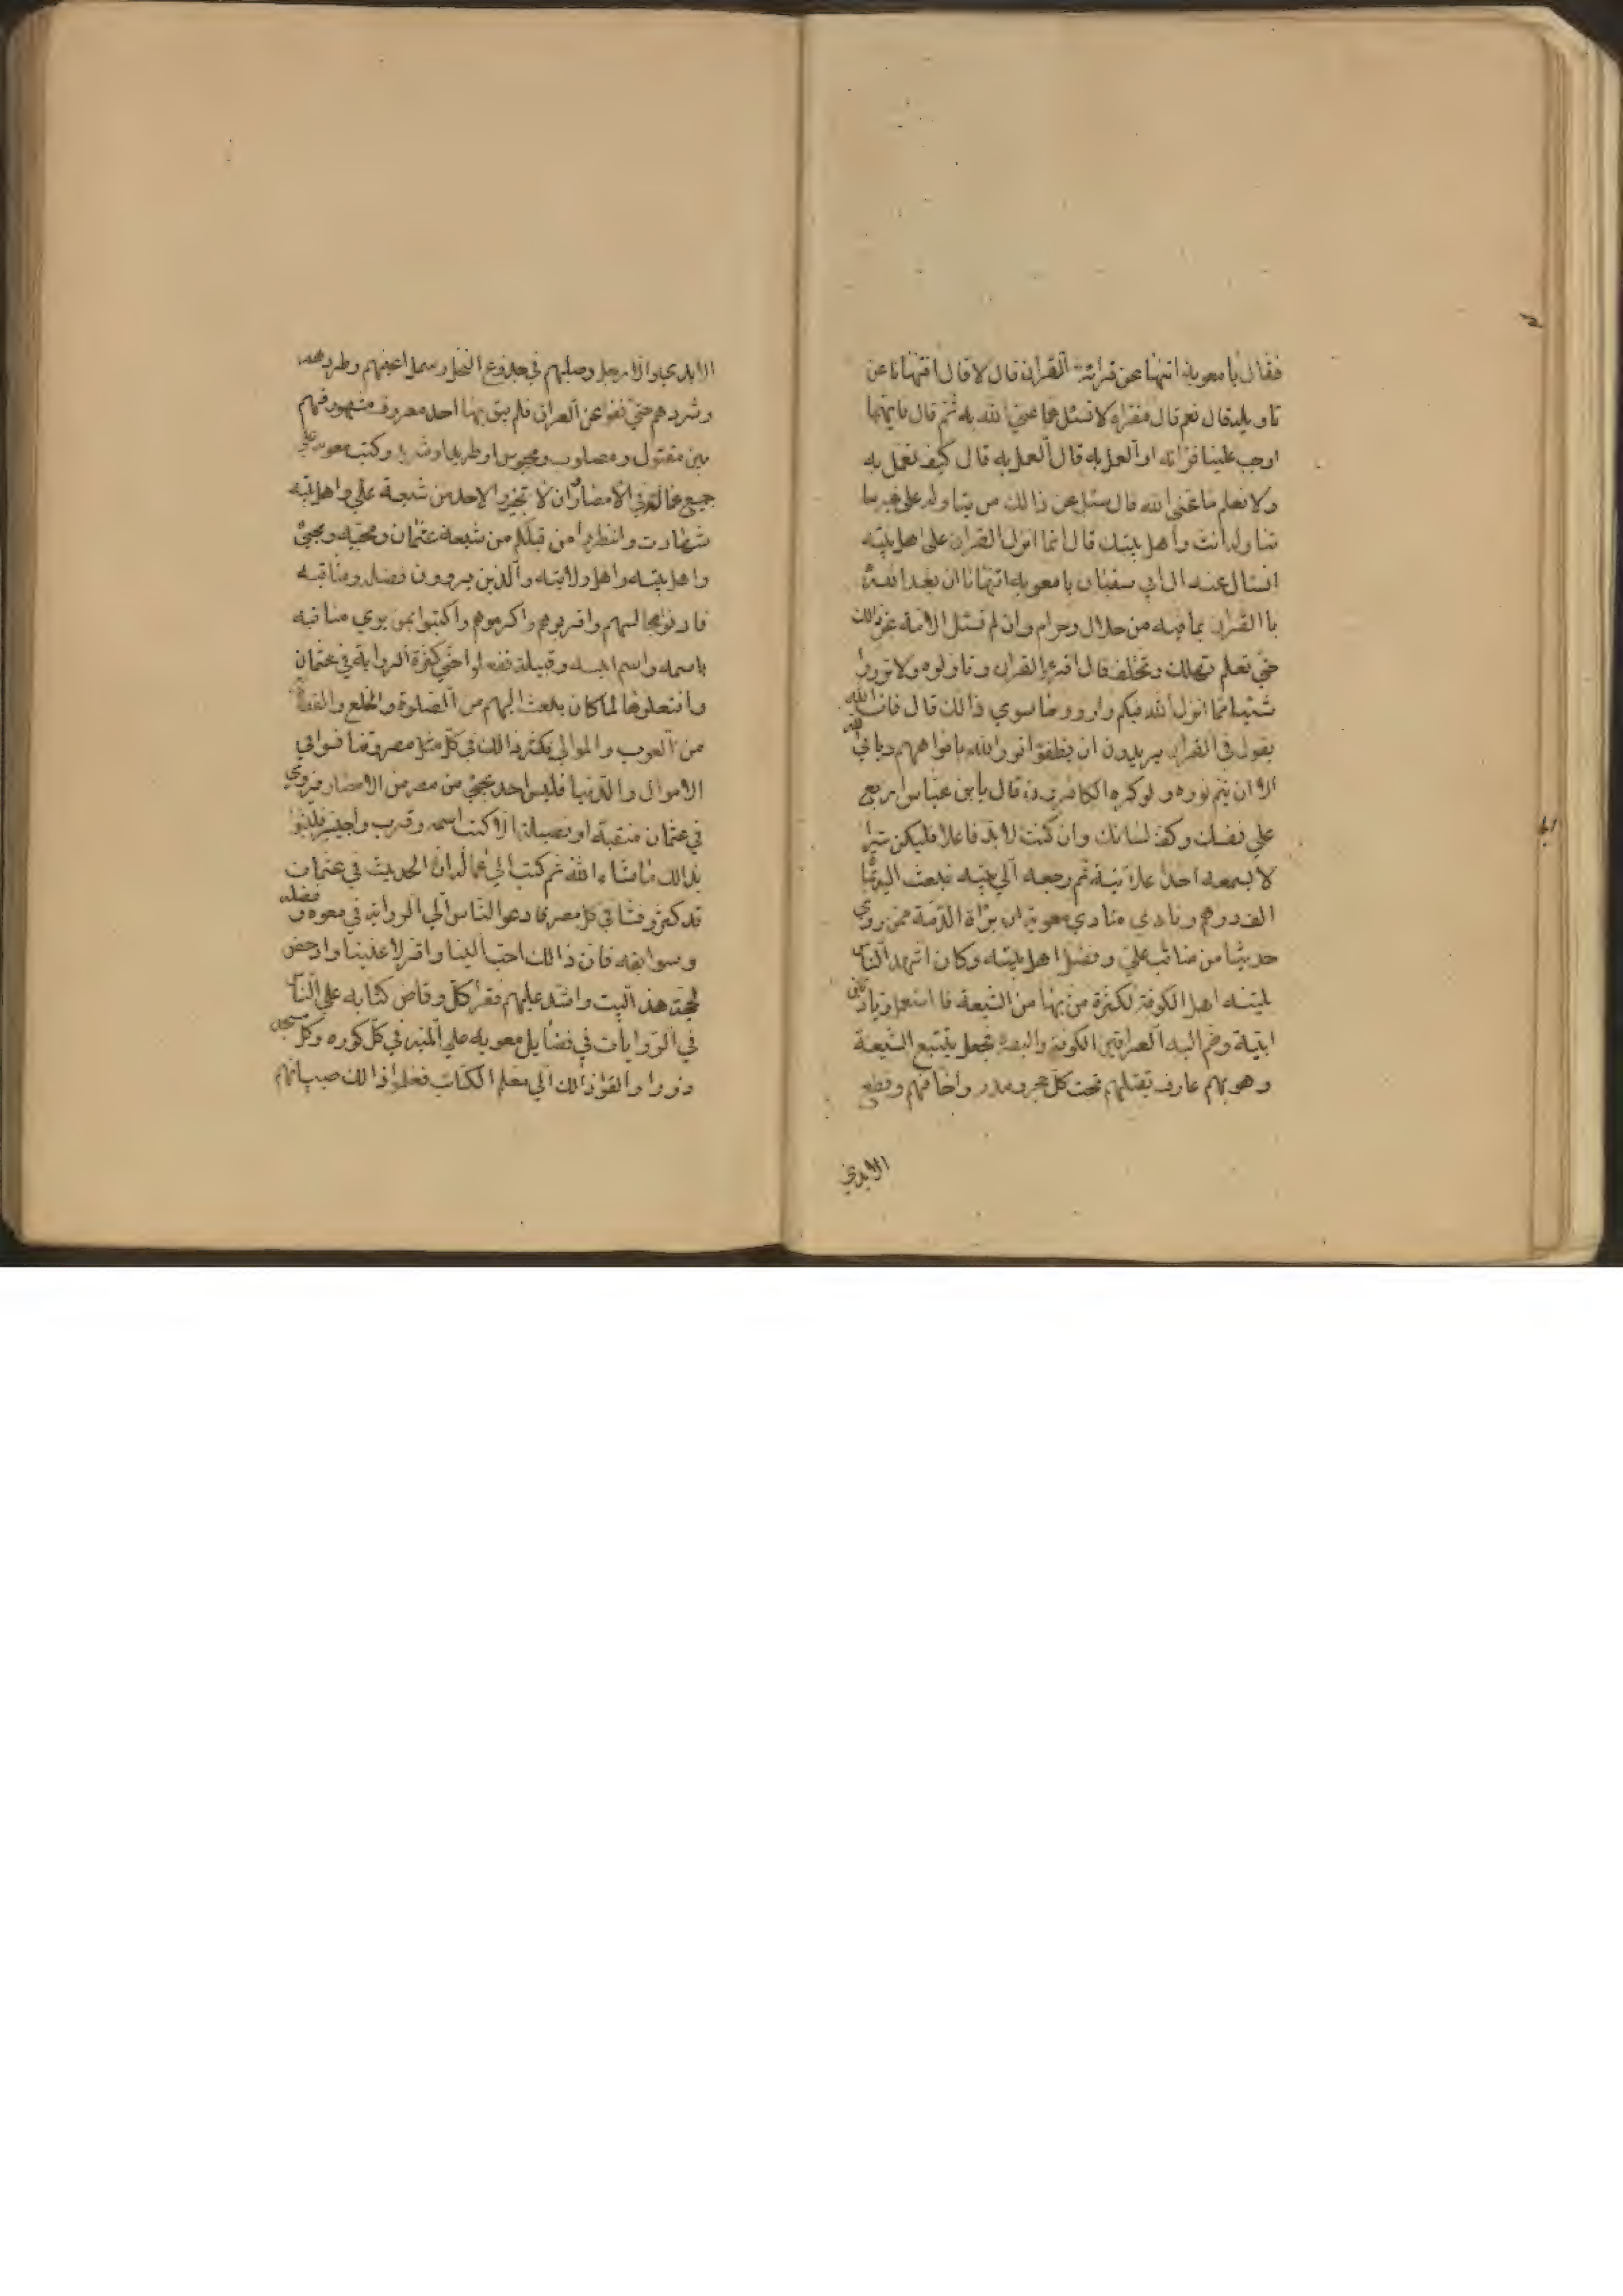 فقال يا معوية اتنهانا عن قرائة القران قال لا قال افتنهانا عن
تاويله قال نعم قال فنقراه ولا نسئل عما عنى الله به ثم قال فايهما
اوجب علينا قرائه او العمل به قال العمل به قال كيف نعمل به
ولا نعلم ما عنى الله قال سئل عن ذالك من يتاوله على غير ما
تتاوله انت واهل بيتك قال انما انزل القران على اهل بيته
انسال عنه ال ابي سفيان يا معويه اتنهانا ان نعبد الله
با القران بما فيه من حلال وحرام وان لم تسئل الامة عن ذالك
حتى تعلم تهلك وتختلف قال اقرؤا القران وتاولوه ولا ترووا
شيئا مما انزل الله فيكم وارووا ما سوى ذالك قال فان الله
يقول في القران يريدون ان يطفؤا نور الله بافواههم ويابى الله
الا ان يتم نوره ولو كره الكافرون قال يابن عباس اربع
على نفسك وكف لسانك وان كنت لا بد فاعلا فليكن سرا
لا يسمعه احدا علانية ثم رجعه الى بيته فبعث اليه
الف درهم ونادى منادى معوية ان براة الذمة ممن روى
حديثا من مناقب علي وفضل اهل بيته وكان اشد الناس
بليته اهل الكوفة لكثرة من بها من الشيعة فا استعمل زياد
ابيه وضم اليه العراقين الكوفة والبصرة فجعل يتتبع الشيعة
وهو بهم عارف يقتلهم تحت كل حجر ومدر واخافهم وقطع
الايدي
الايدي والارجل وصلبهم في جذوع النخل وسمل اعينهم وطردهم
وشردهم حتى نفوا عن العراق فلم يبق بها احد معروف مشهور فهم
بين مقتول ومصلوب ومحبوس او طريدا وشريد وكتب معويه على
جميع عماله في الامصار ان لا تجيزوا لاحد من شيعة علي واهل بيته
شهادت وانظروا من قبلكم من شيعة عثمان ومحبيه ومحبي
واهل بيته واهل ولايته والذين يروون فضله ومناقبه
فادنوا مجالسهم واقربوهم واكرموهم واكتبوا بمن يروي مناقبه
باسمه واسم ابيه وقبيلة ففعلوا حتى كثرة الرواية في عثمان
وافتعلوها لما كان يبعث اليهم من الصلوة والخلع والقطا
من العرب والموالي فكثر ذالك في كل مصر وتنافسوا في
الاموال والدنيا فليس احد يجئ من مصر من الامصار فيروي
في عثمان منقبة او فضيلة الا كتب اسمه وقرب واجيز فلبثوا
بذالك ماشاء الله ثم كتب الى عماله ان الحديث في عثمان
قد كثر وفشا في كل مصر فادعوا الناس الى الرواية في معويه وفضله
وسوابقه فان ذالك احب الينا واقر لاعيننا وادحض
لحجة هذا البيت واشد عليهم فقرا كل وقاض كتابه على الناس
في الروايات في فضايل معويه على المنبر في كل كوره وكل مسجد
وزورا والقوا ذالك الى معلم الكتاب فعلموا ذالك صبيانهم